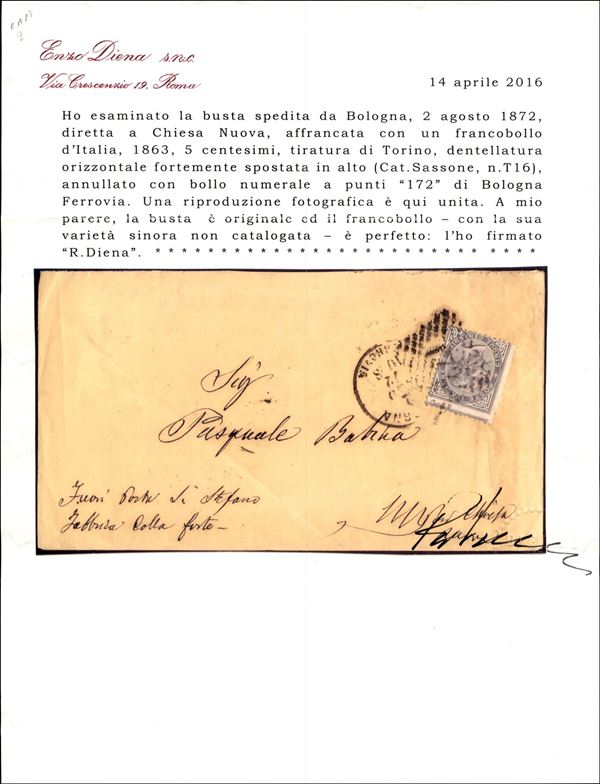 Enzo Diena s.n.c.
Via Crescenzio 19, Roma
14 aprile 2016
Ho esaminato la busta spedita da Bologna, 2 agosto 1872,
diretta a Chiesa Nuova, affrancata con un francobollo
d'Italia, 1863, 5 centesimi, tiratura di Torino, dentellatura
orizzontale fortemente spostata in alto (Cat.Sassone, n.T16),
annullato con bollo numerale a punti "172" di Bologna
Ferrovia. Una riproduzione fotografica è qui unita. A mio
parere, la busta è originale ed il francobollo – con la sua
varietà sinora non catalogata – è perfetto: l'ho firmato
"R.Diena". * * * * * * * * * * * * * * * * * * * * * * * * * * * * * *
Sig
Pasquale
Fuori Porta S. Stefano
Fabbrica Colla forte
Chiesa